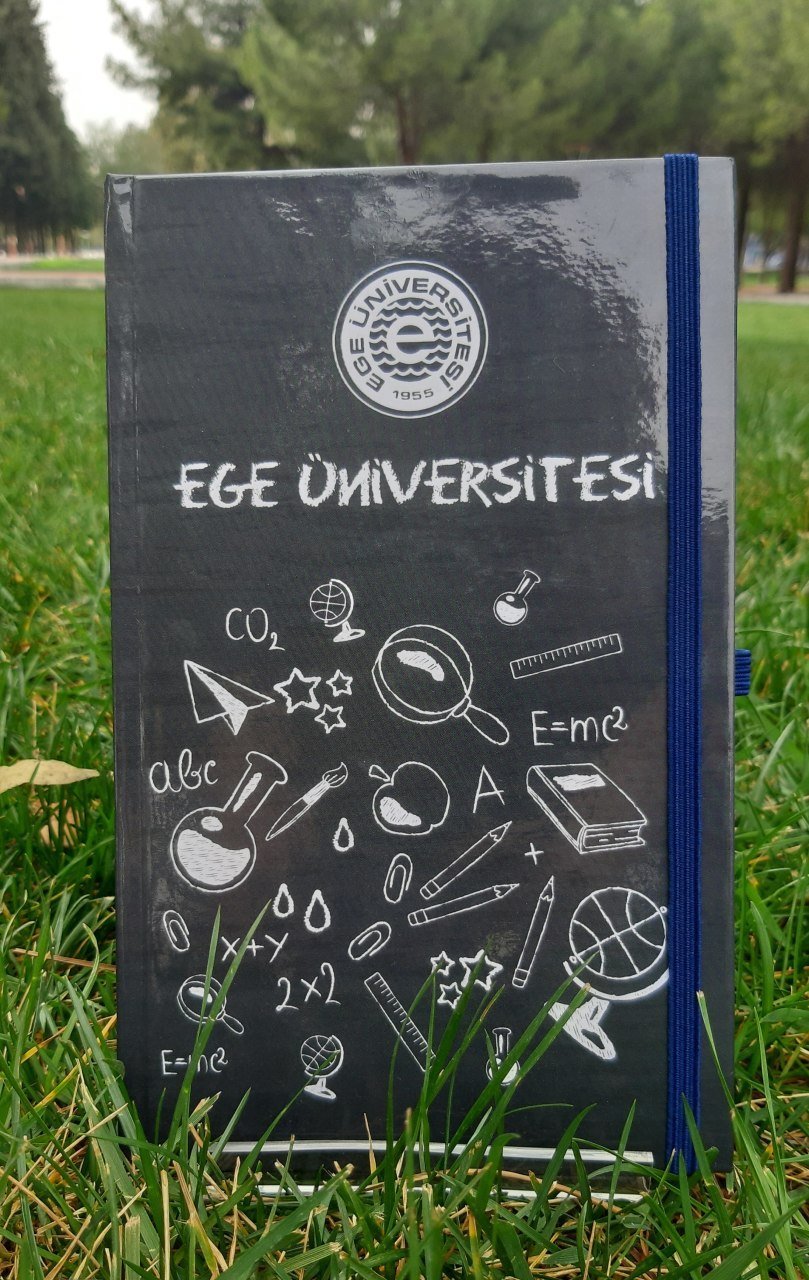 EGE ÜNİVERSİTESİ
1955
e
EGE ÜNİVERSİTESİ
CO₂
E=mc²
abc
A
+
x+y
2x2
E=mc²